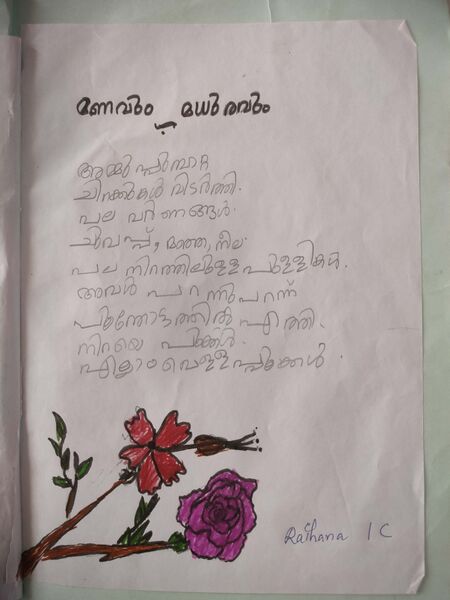 മണവും മധുരവും
അമ്മു പൂമ്പാറ്റ
ചിറകുകൾ വിടർത്തി.
പല വർണങ്ങൾ.
ചുവപ്പ്, മഞ്ഞ, നീല
പല നിറത്തിലുള്ള പുള്ളികൾ.
അവൾ പറന്നുപറന്ന്
പൂന്തോട്ടത്തിൽ എത്തി.
നിറയെ പൂക്കൾ.
എല്ലാം വെള്ളപ്പൂക്കൾ.
Rathana 1C